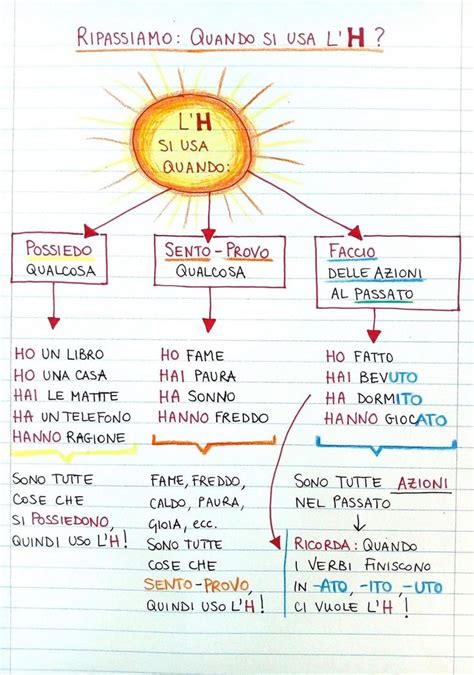 RIPASSIAMO: QUANDO SI USA L'H?
L'H
SI USA
QUANDO:
POSSIEDO
QUALCOSA
HO UN LIBRO
HO UNA CASA
HAI LE MATITE
HA UN TELEFONO
HANNO RAGIONE
SONO TUTTE
COSE CHE
SI POSSIEDONO,
QUINDI USO L'H!
SENTO-PROVO
QUALCOSA
HO FAME
HAI PAURA
HA SONNO
HANNO FREDDO
FAME, FREDDO,
CALDO, PAURA,
GIOIA, ECC.
SONO TUTTE
COSE CHE
SENTO-PROVO,
QUINDI USO L'H!
FACCIO
DELLE AZIONI
AL PASSATO
HO FATTO
HAI BEVUTO
HA DORMITO
HANNO GIOCATO
SONO TUTTE AZIONI
NEL PASSATO
RICORDA: QUANDO
I VERBI FINISCONO
IN -ATO, -ITO, -UTO
CI VUOLE L'H!